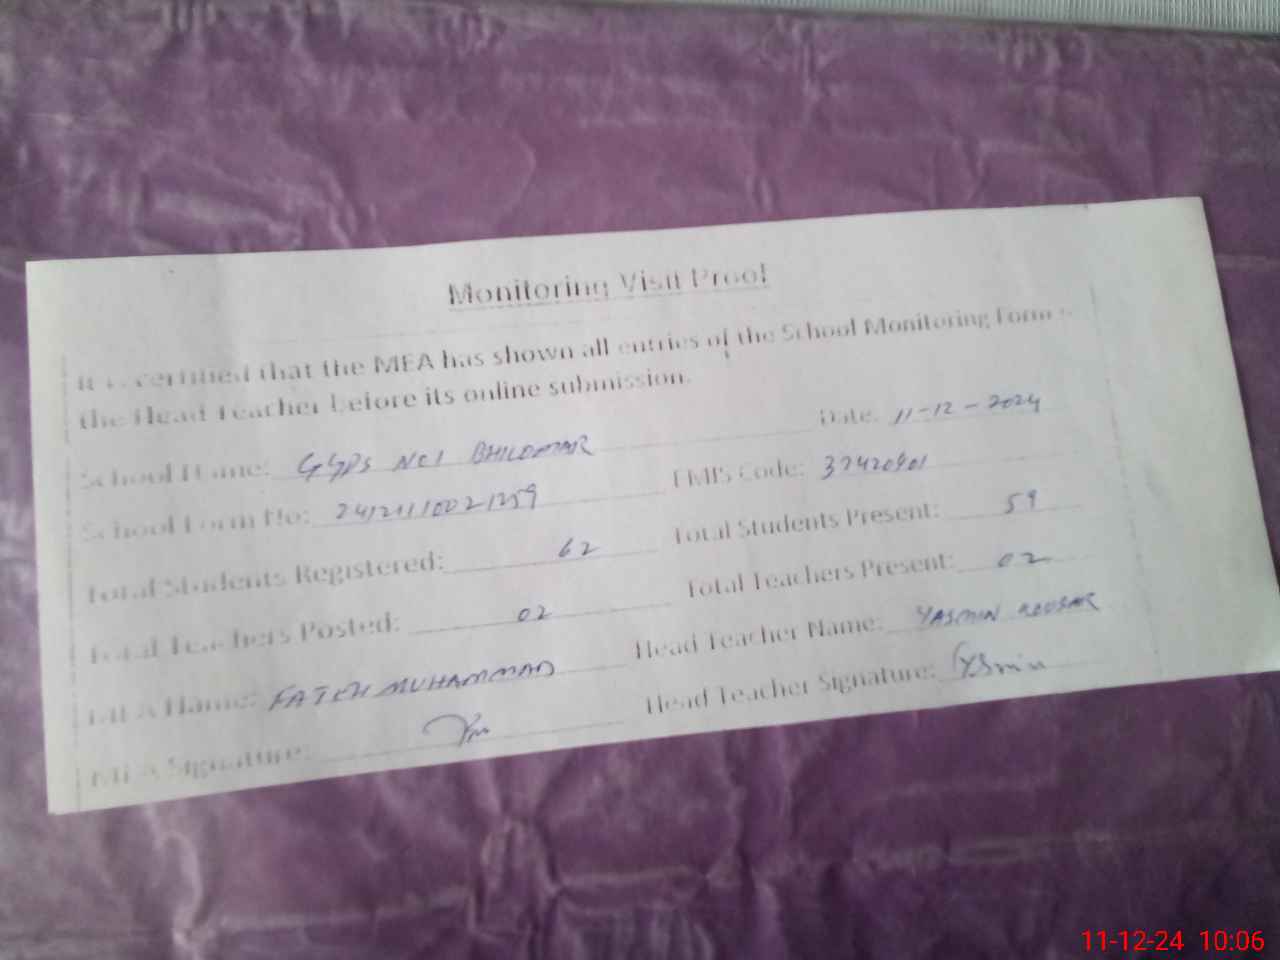 Monitoring Visit Proof
It is certified that the MEA has shown all entries of the School Monitoring Form
the Head Teacher before its online submission.
School Name: GGPS NO1 BHILOMAR Date: 11-12-2024
School Form No: EMIS Code: 37420901
Total Students Registered: 62 Total Students Present: 59
Total Teachers Posted: 02 Total Teachers Present: 02
MEA Name: FATEH MUHAMMAD Head Teacher Name: YASMIN KOUSAR
MEA Signature: Head Teacher Signature:
11-12-24 10:06